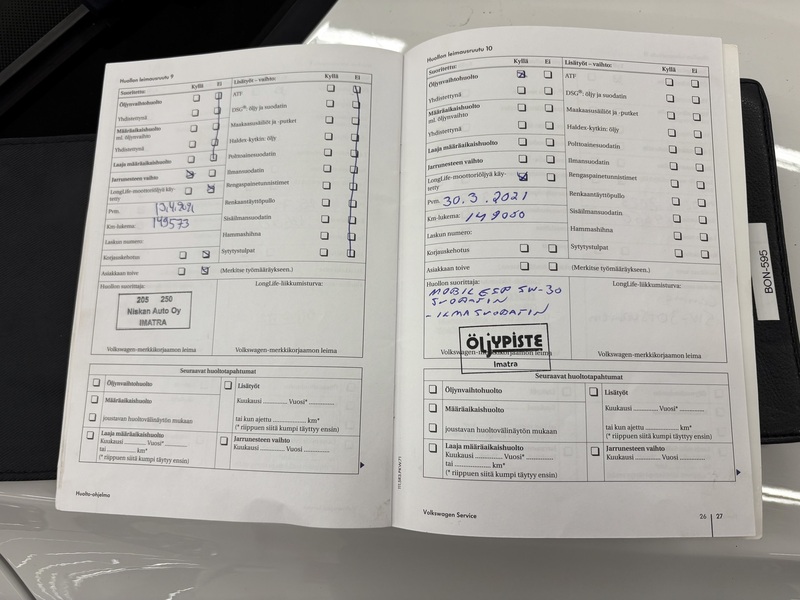 Huollon leimausruutu 9
Suoritettu: Kyllä Ei Lisätyöt – vaihto: Kyllä Ei
Öljynvaihtohuolto
Yhdistettynä
Määräaikaishuolto
ml. öljynvaihto
Yhdistettynä
Laaja määräaikaishuolto
Jarrunesteen vaihto
LongLife-moottoriöljyä käy-
tetty
Pvm.
Km-lukema: 149573
Laskun numero:
Korjauskehotus
Asiakkaan toive
ATF
DSG®: öljy ja suodatin
Maakaasusäiliöt ja -putket
Haldex-kytkin: öljy
Polttoainesuodatin
Ilmansuodatin
Rengaspainetunnistimet
Renkaantäyttöpullo
Sisäilmansuodatin
Hammashihna
Sytytystulpat
(Merkitse työmääräykseen.)
Huollon suorittaja:
205 250
Niskan Auto Oy
IMATRA
Volkswagen-merkkikorjaamon leima
LongLife-liikkumisturva:
Volkswagen-merkkikorjaamon leima
Seuraavat huoltotapahtumat
Öljynvaihtohuolto
Määräaikaishuolto
joustavan huoltovälinäytön mukaan
Laaja määräaikaishuolto
Kuukausi ............ Vuosi* ............
tai ............ km*
(* riippuen siitä kumpi täytyy ensin)
Lisätyöt
Kuukausi ............ Vuosi* ............
tai kun ajettu ............ km*
(* riippuen siitä kumpi täytyy ensin)
Jarrunesteen vaihto
Kuukausi ............ Vuosi ............
Huolto-ohjelma
Huollon leimausruutu 10
Suoritettu: Kyllä Ei Lisätyöt – vaihto: Kyllä Ei
Öljynvaihtohuolto
Yhdistettynä
Määräaikaishuolto
ml. öljynvaihto
Yhdistettynä
Laaja määräaikaishuolto
Jarrunesteen vaihto
LongLife-moottoriöljyä käy-
tetty
Pvm. 30.3.2021
Km-lukema: 149000
Laskun numero:
Korjauskehotus
Asiakkaan toive
ATF
DSG®: öljy ja suodatin
Maakaasusäiliöt ja -putket
Haldex-kytkin: öljy
Polttoainesuodatin
Ilmansuodatin
Rengaspainetunnistimet
Renkaantäyttöpullo
Sisäilmansuodatin
Hammashihna
Sytytystulpat
(Merkitse työmääräykseen.)
Huollon suorittaja:
MOBIL ESP 5W-30
SUODATIN
- ILMASUODATIN
ÖLJYPISTE
Imatra
Volkswagen-merkkikorjaamon leima
LongLife-liikkumisturva:
Volkswagen-merkkikorjaamon leima
Seuraavat huoltotapahtumat
Öljynvaihtohuolto
Määräaikaishuolto
joustavan huoltovälinäytön mukaan
Laaja määräaikaishuolto
Kuukausi ............ Vuosi* ............
tai ............ km*
(* riippuen siitä kumpi täytyy ensin)
Lisätyöt
Kuukausi ............ Vuosi* ............
tai kun ajettu ............ km*
(* riippuen siitä kumpi täytyy ensin)
Jarrunesteen vaihto
Kuukausi ............ Vuosi ............
Volkswagen Service
26 27
BON-595